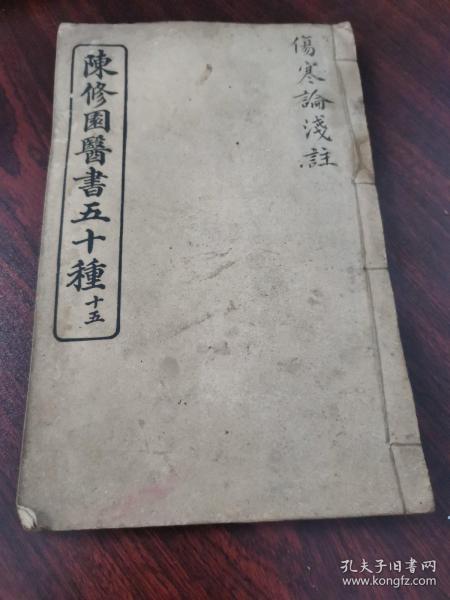 傷寒論淺註
陳修園醫書五十種 十五
孔夫子旧书网
www.kongfz.com